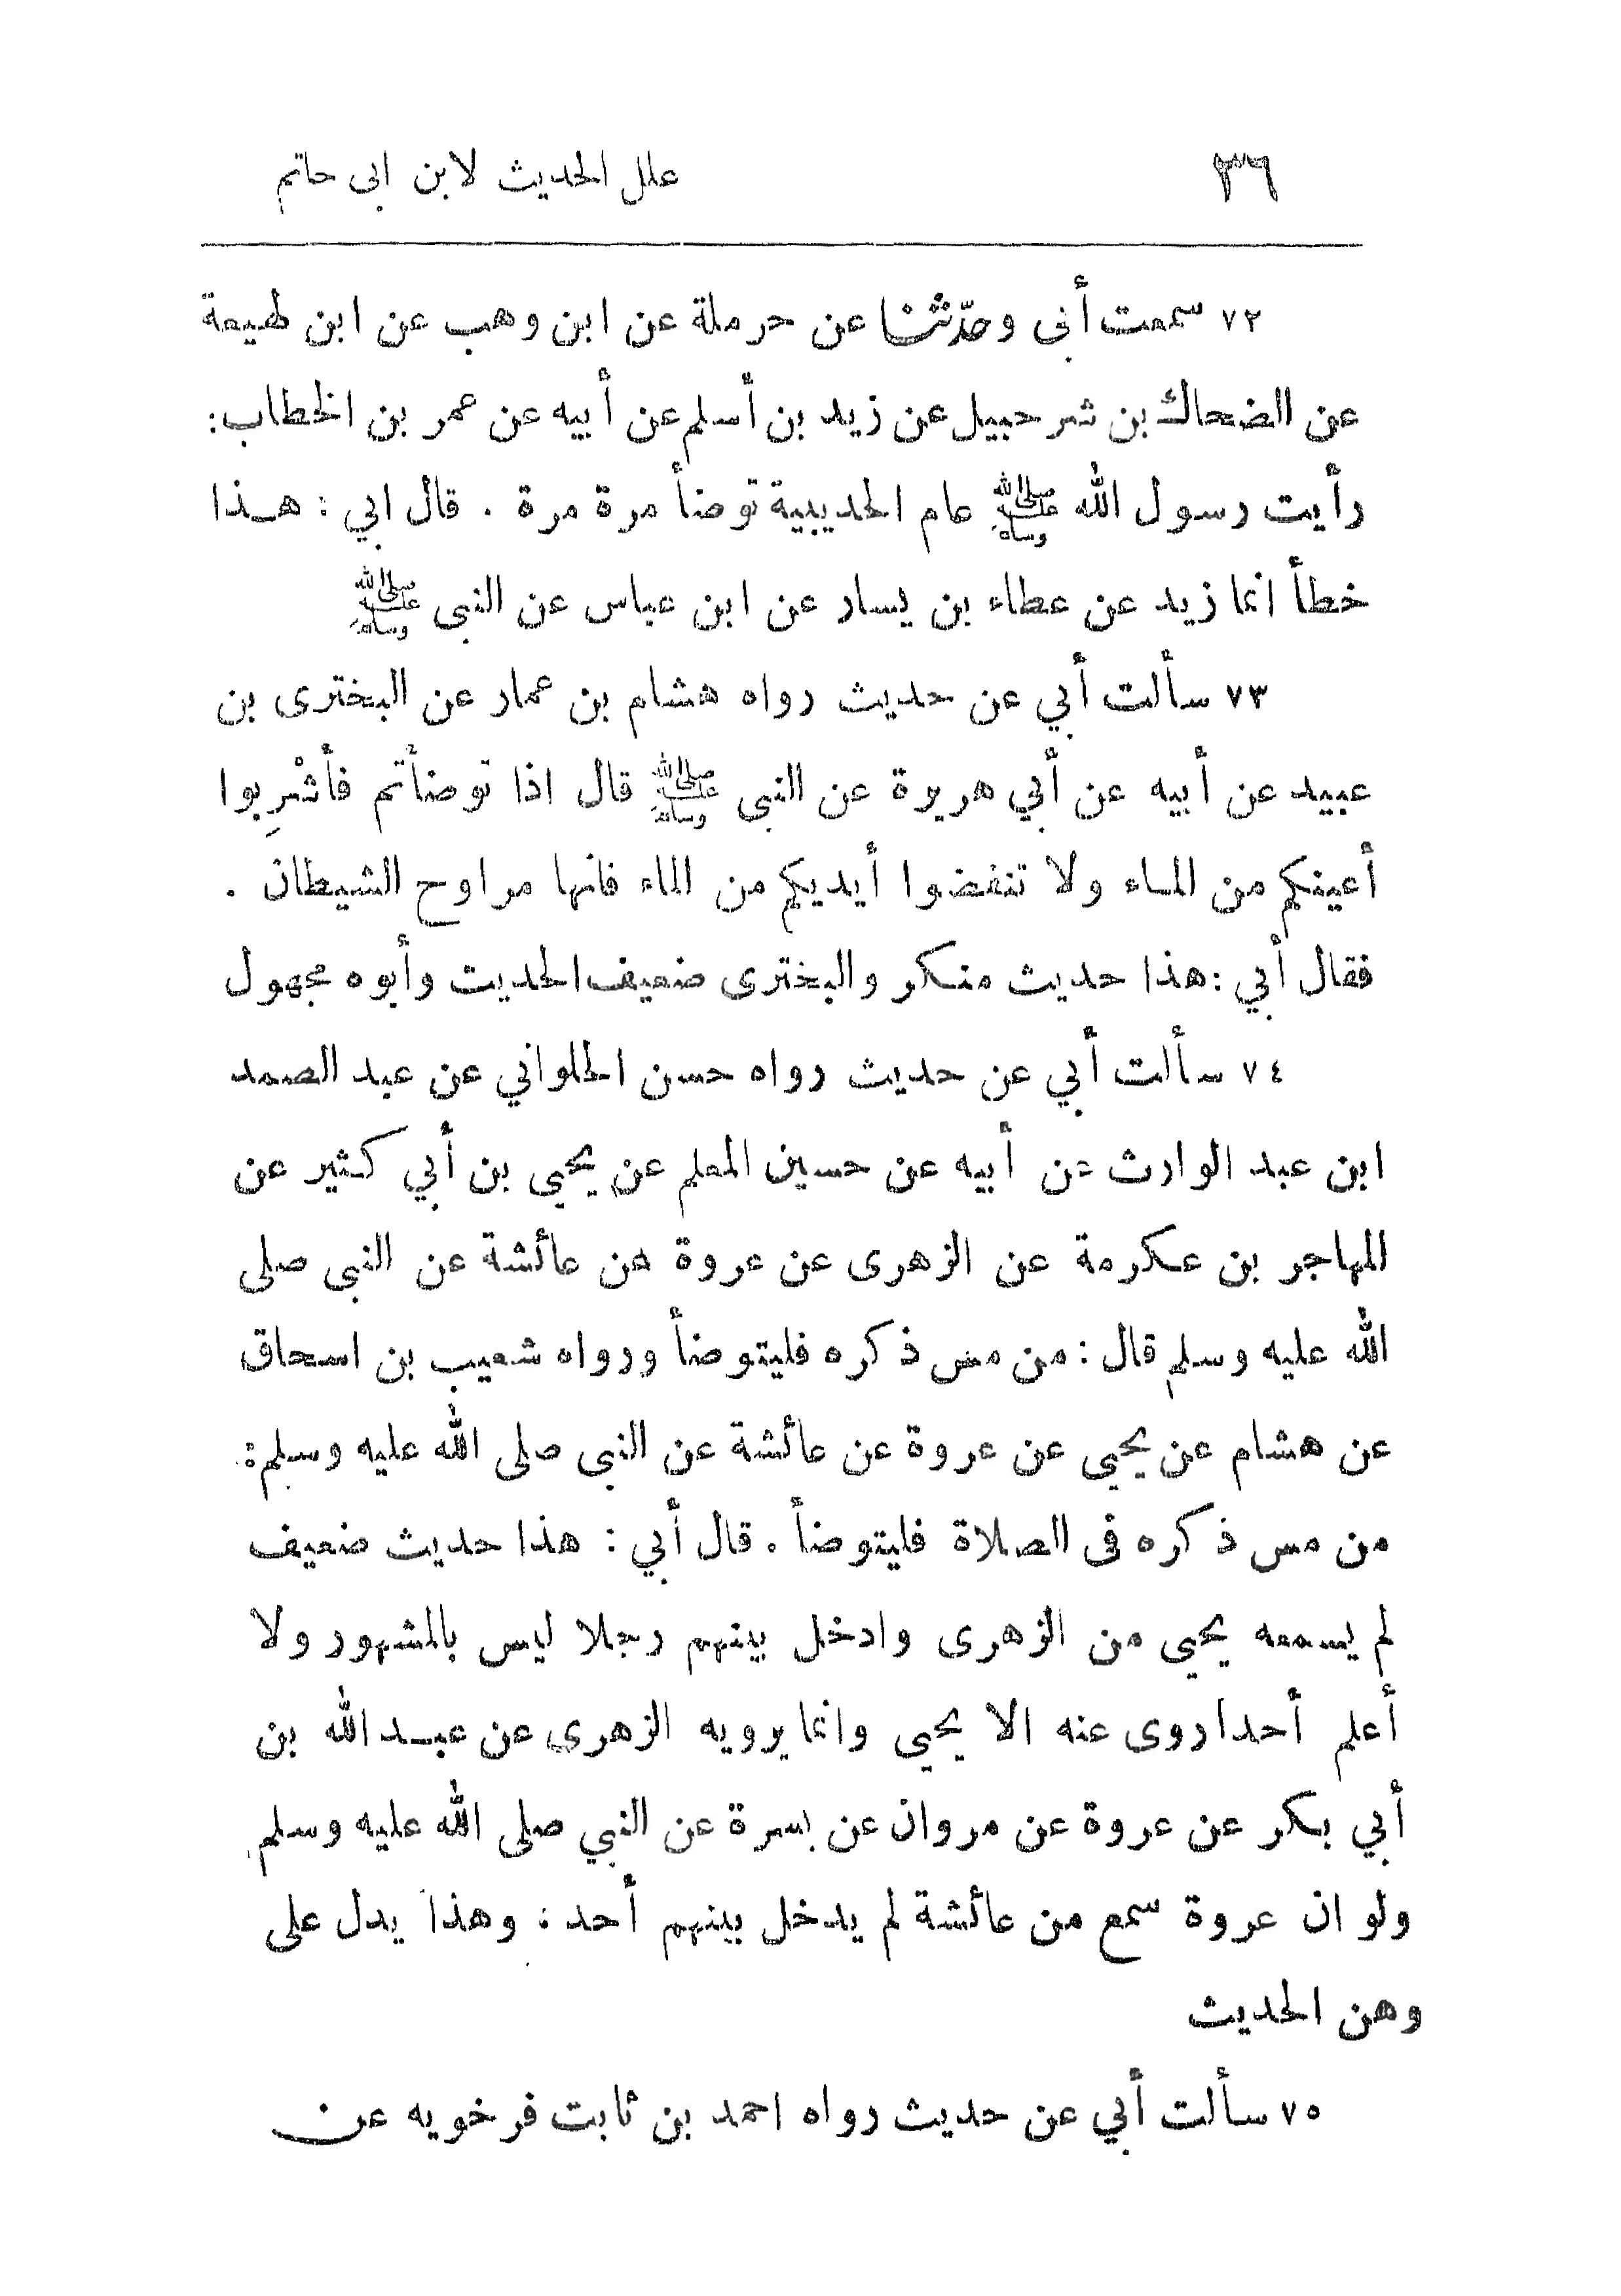 ٣٦ علل الحديث لابن ابى حاتم
٧٢ سمعت أبى وحدّثنا عن حرملة عن ابن وهب عن ابن لهيعة
عن الضحاك بن شرحبيل عن زيد بن أسلم عن أبيه عن عمر بن الخطاب:
رأيت رسول الله ﷺ عام الحديبية توضأ مرة مرة . قال ابي : هـذا
خطأ انما زيد عن عطاء بن يسار عن ابن عباس عن النبى ﷺ
٧٣ سألت أبي عن حديث رواه هشام بن عمار عن البخترى بن
عبيد عن أبيه عن أبي هريرة عن النبى ﷺ قال اذا توضأتم فأشْرِبوا
أعينكم من المـاء ولا تنفضوا أيديكم من الماء فانها مراوح الشيطان .
فقال أبي : هذا حديث منكر والبخترى ضعيف الحديث وأبوه مجهول
٧٤ سألت أبي عن حديث رواه حسن الحلواني عن عبد الصمد
ابن عبد الوارث عن أبيه عن حسين المعلم عن يحيى بن أبي كثير عن
المهاجر بن عكرمة عن الزهرى عن عروة عن عائشة عن النبى صلى
الله عليه وسلم قال : من مس ذكره فليتوضأ ورواه شعيب بن اسحاق
عن هشام عن يحيى عن عروة عن عائشة عن النبى صلى الله عليه وسلم :
من مس ذكره فى الصلاة فليتوضأ . قال أبي : هذا حديث ضعيف
لم يسمعه يحيى من الزهرى وادخل بينهم رجلا ليس بالمشهور ولا
أعلم أحدا روى عنه الا يحيى وانما يرويه الزهرى عن عبـد الله بن
أبي بكر عن عروة عن مروان عن بسرة عن النبي صلى الله عليه وسلم
ولو ان عروة سمع من عائشة لم يدخل بينهم أحد : وهذا يدل على
وهن الحديث
٧٥ سألت أبي عن حديث رواه احمد بن ثابت فرخويه عن